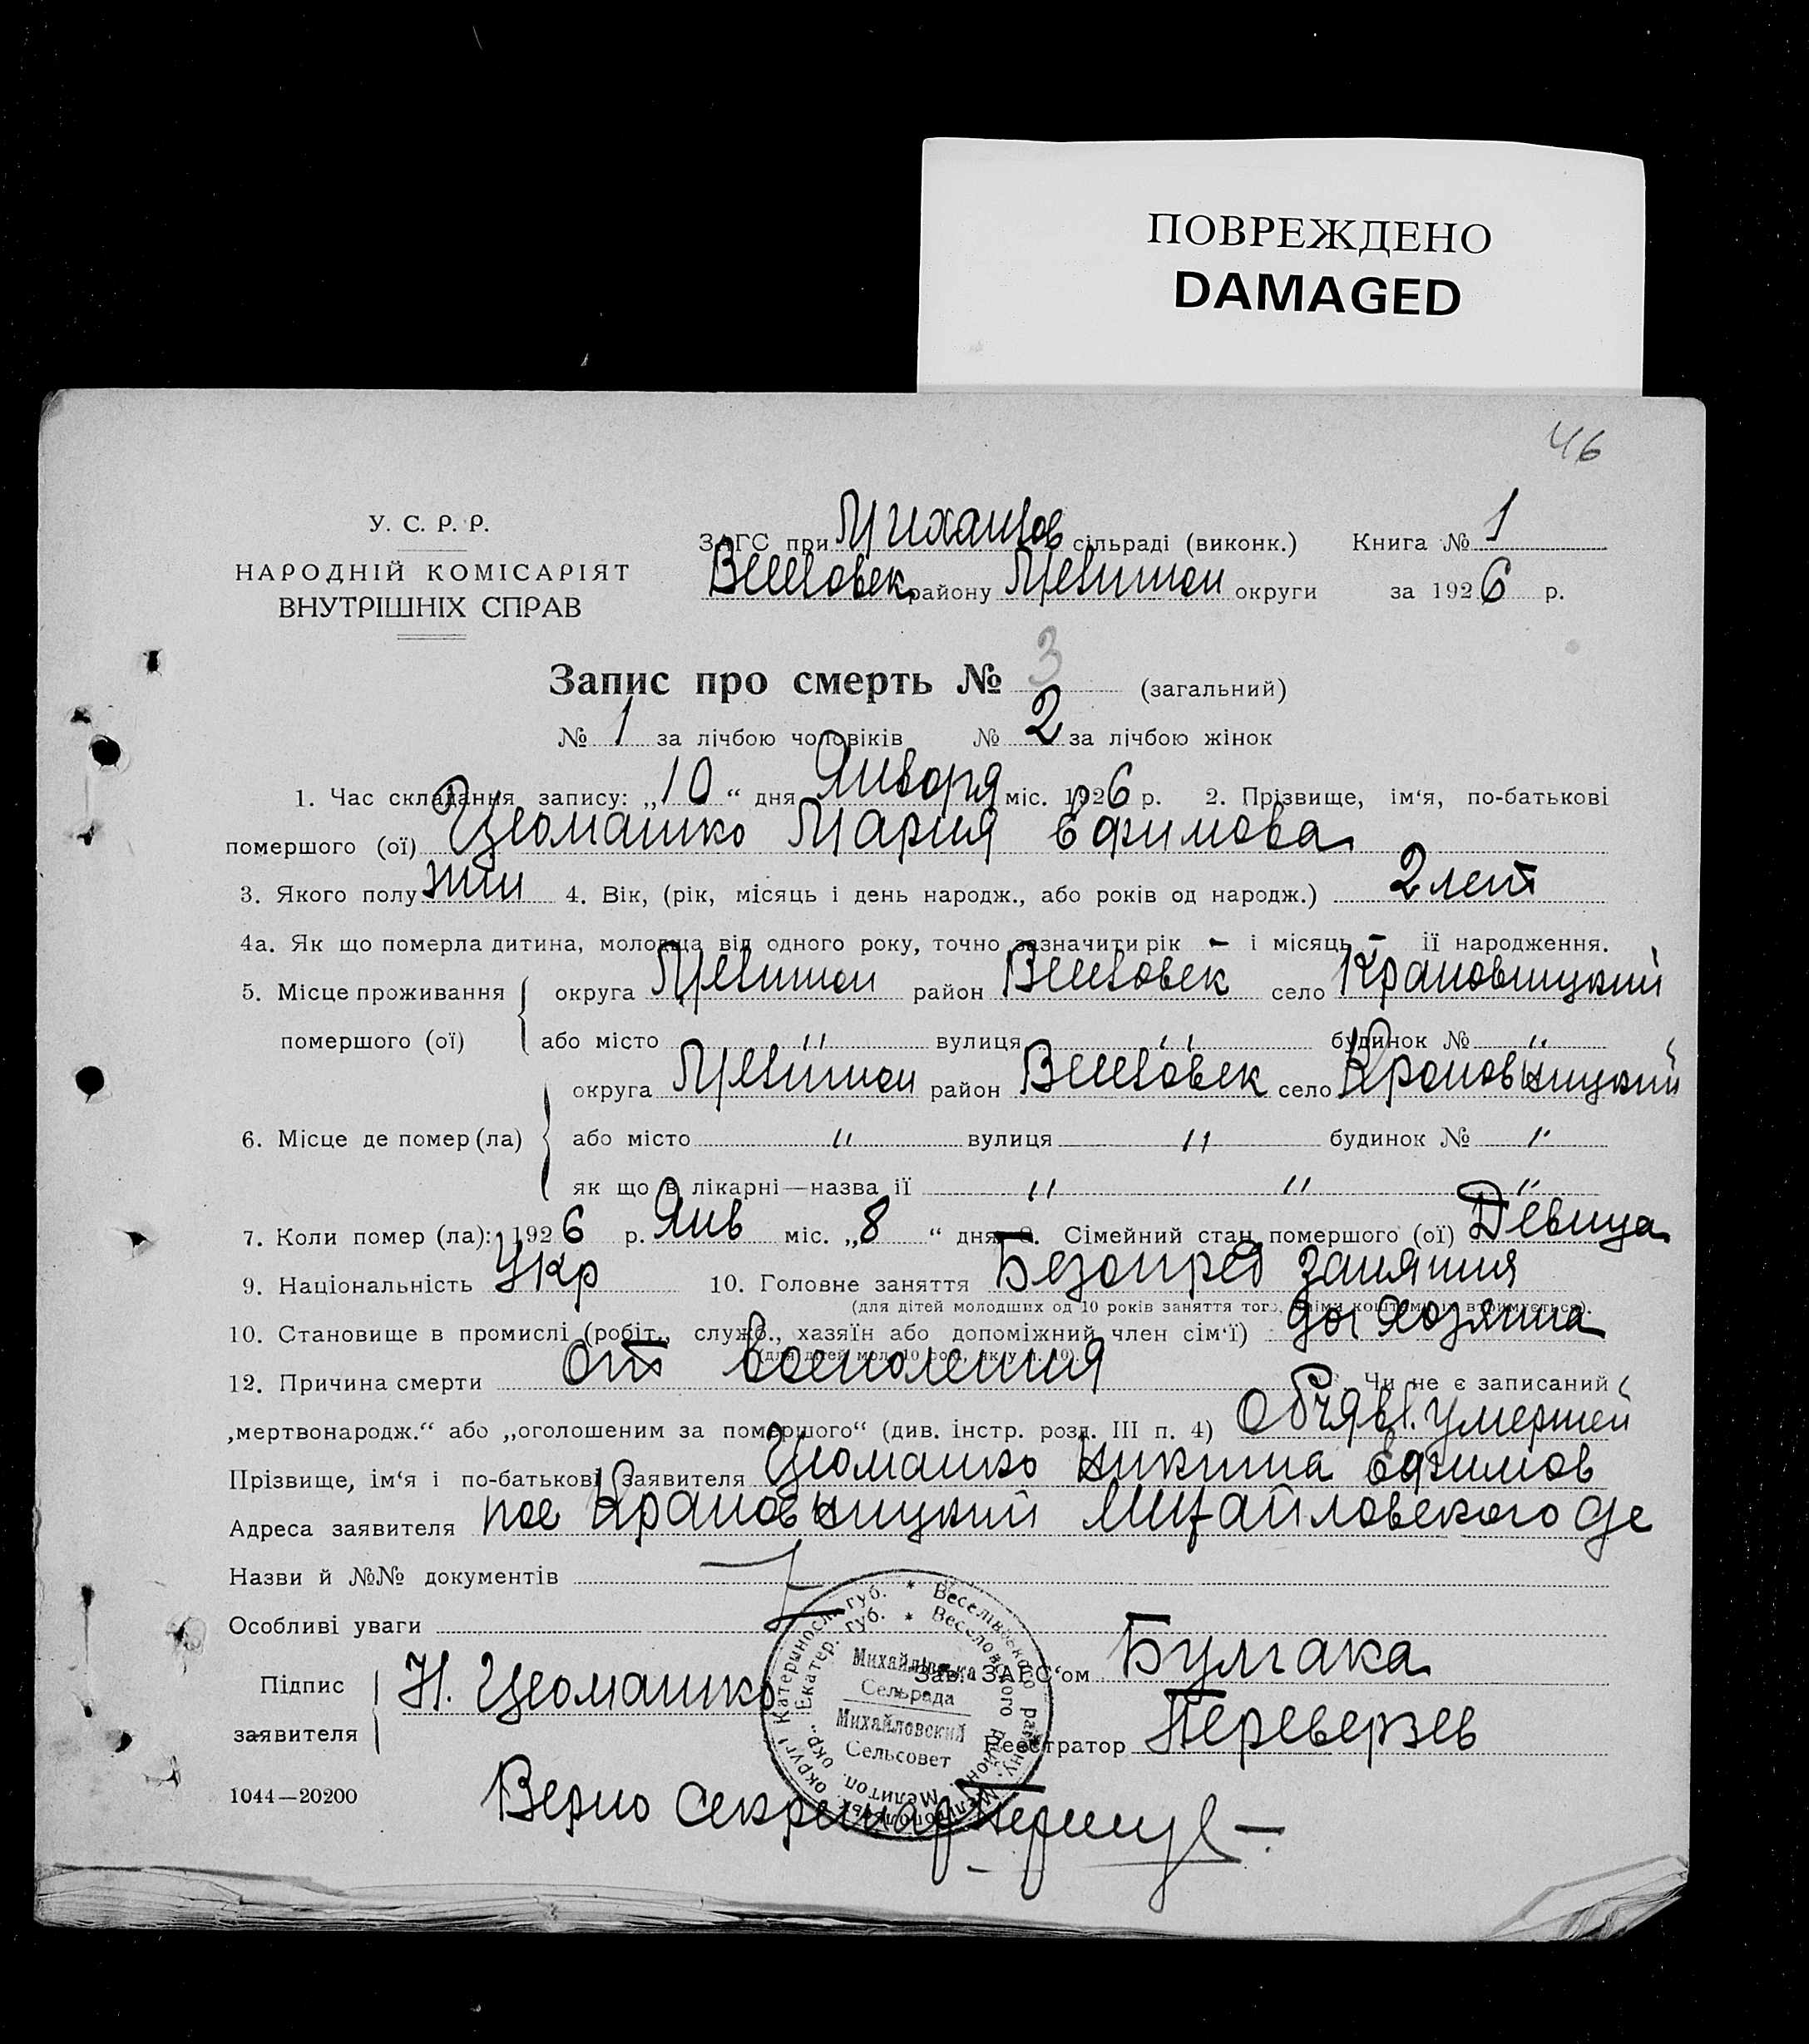 ПОВРЕЖДЕНО
DAMAGED
46
У. С. Р. Р.
НАРОДНІЙ КОМІСАРІЯТ
ВНУТРІШНІХ СПРАВ
ЗАГС при Михайлов сільраді (виконк.) Книга № 1
Веселовск району Мелитоп округи за 1926 р.
Запис про смерть № 3 (загальний)
№ 1 за лічбою чоловіків № 2 за лічбою жінок
1. Час складання запису: „10“ дня Января міс. 1926 р. 2. Прізвище, ім‘я, по-батькові
помершого (ої) Мария Ефимова
3. Якого полу жен 4. Вік, (рік, місяць і день народж., або років од народж.) 2 лет
4а. Як що померла дитина, молодша від одного року, точно зазначити рік - і місяць - її народження.
5. Місце проживання помершого (ої) { округа Мелитоп район Веселовск село
або місто " вулиця " будинок № "
6. Місце де помер (ла) { округа Мелитоп район Веселовск село
або місто " вулиця " будинок № "
як що в лікарні—назва її " " "
7. Коли помер (ла): 1926 р. Янв міс. „8“ дня 8. Сімейний стан помершого (ої) Девица
9. Національність Укр 10. Головне заняття Безопред занятия
(для дітей молодших од 10 років заняття того, чіїми коштами їх втримується).
10. Становище в промислі (робіт., служб., хазяїн або допоміжний член сім‘ї) хозяина
(для дітей мол. 10 рок., як у п. 10).
12. Причина смерти от воспаления Чи не є записаний
„мертвонародж.“ або „оголошеним за помершого“ (див. інстр. розд. III п. 4) Объявл. умершей
Прізвище, ім‘я і по-батькові заявителя Никита Ефимов
Адреса заявителя пос Михайловского
Назви й №№ документів
Особливі уваги
Підпис заявителя Н.
Зав. ЗАГС‘ом Булгака
Реєстратор Переверзев
Михайлівська
Сельрада
Михайловский
Сельсовет
1044—20200
Верно Секретар